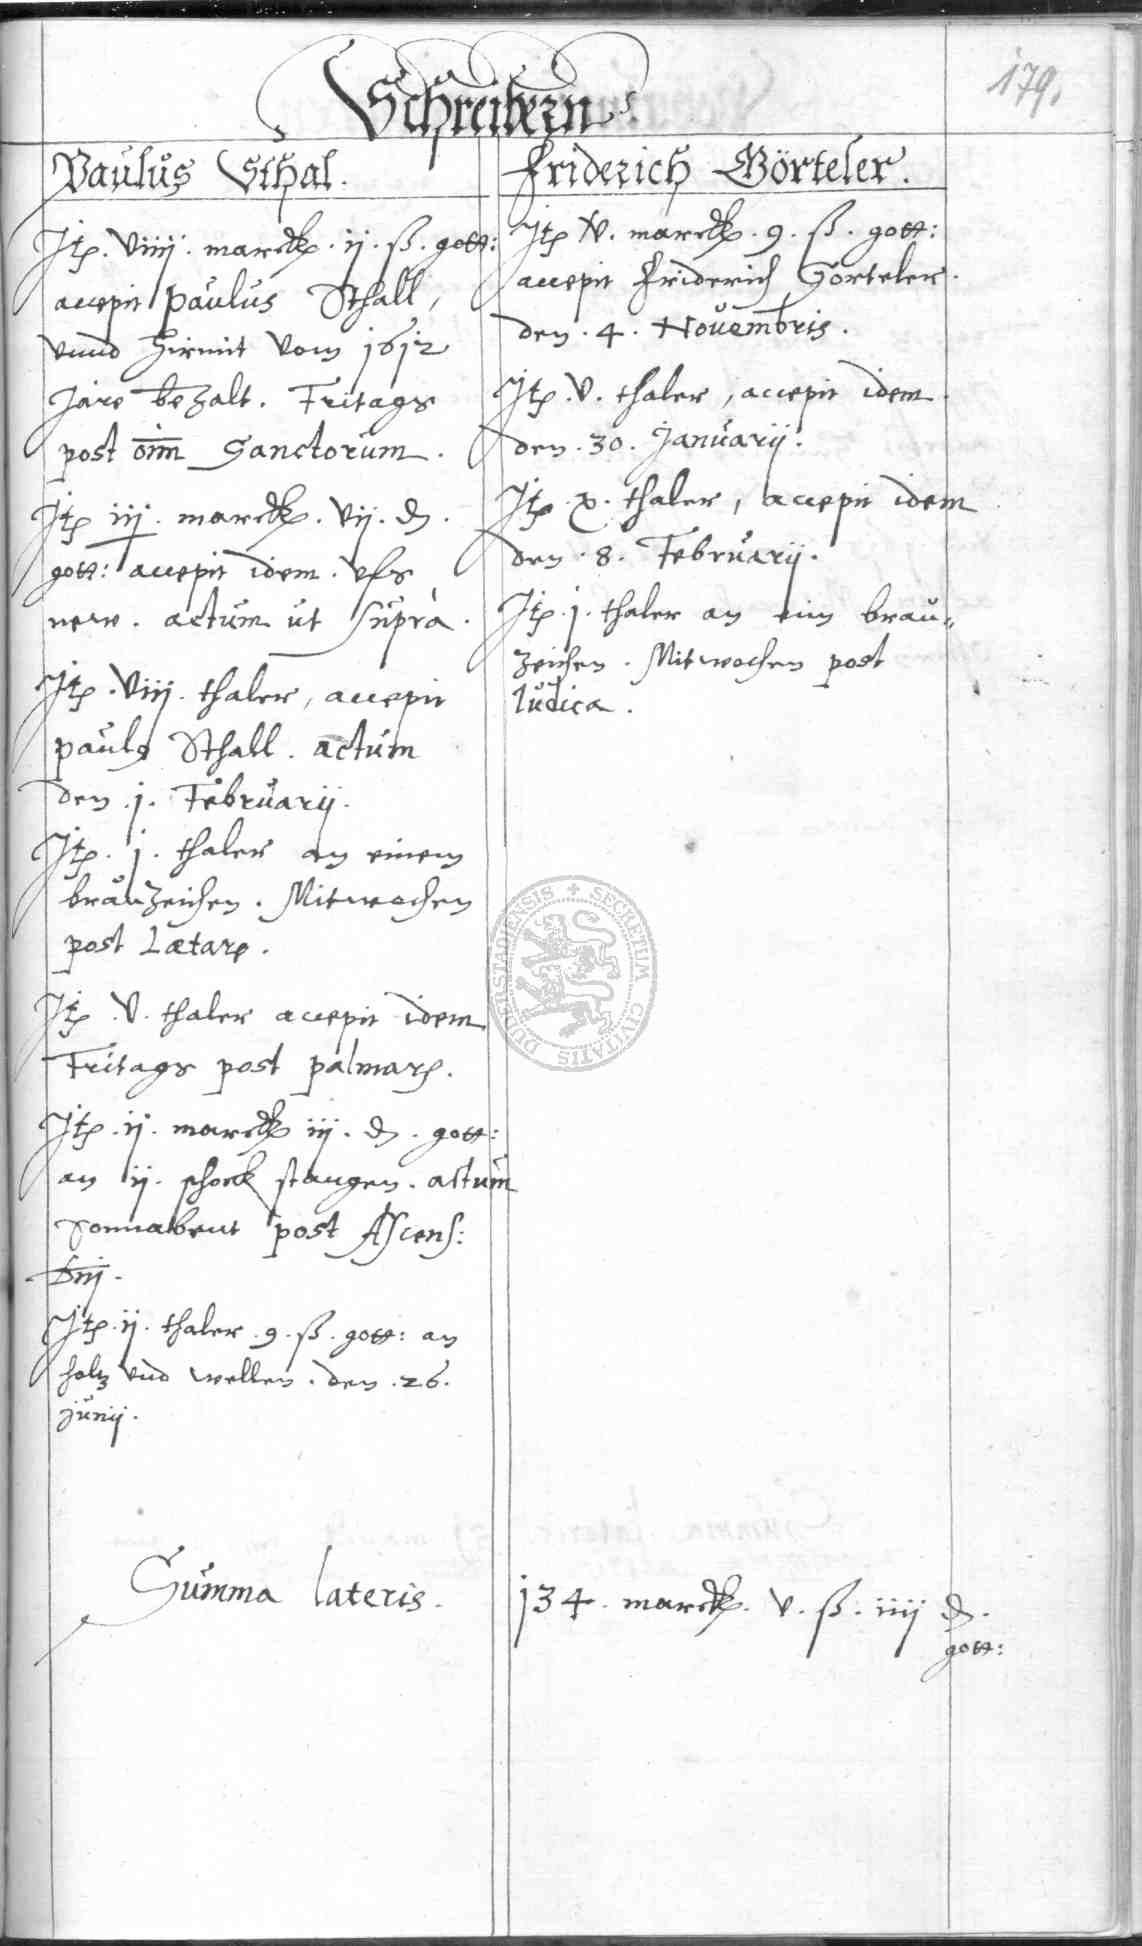 179.
Schreibern
Paulus Sthal.
Jtp. Viiij. marck. ij. ß. gott:
accepit Paulus Sthall,
vnnd hirmit vom 1612
Jare bezalt. Fritags
post om̅ Sanctorum.
Jtp iij. marck. vij. d.
gott: accepit idem. vfs
new. actum ut supra.
Jtp. Viij. thaler, accepit
pauls Sthall. actum
den .j. Februarij.
Jtp. j. thaler an einem
brauzeichen. Mitwochen
post Lætare.
Jtp. V. thaler accepit idem
Fritags post palmarum.
Jtp. ij. marck iij. d. gott:
an ij. schock stangen. actum
Sonnabent post Ascens:
Dnj.
Jtp. ij. thaler .9. ß. gott: an
holtz vnd wellen. den .26.
junij.
Friderich Görteler.
Jtp V. marck. 9. ß. gott:
accepit Friderich Gorteler.
den .4. Novembris.
Jtp. V. thaler, accepit idem
den .30. Januarij.
Jtp x. thaler, accepit idem
den .8. Februarij.
Jtp. j. thaler an eim brau-
zeichen. Mitwochen post
Iudica.
SECRETUM CIVITATIS DUDERSTADIENSIS
Summa lateris. 134. marck. V. ß. iiij d.
gott: